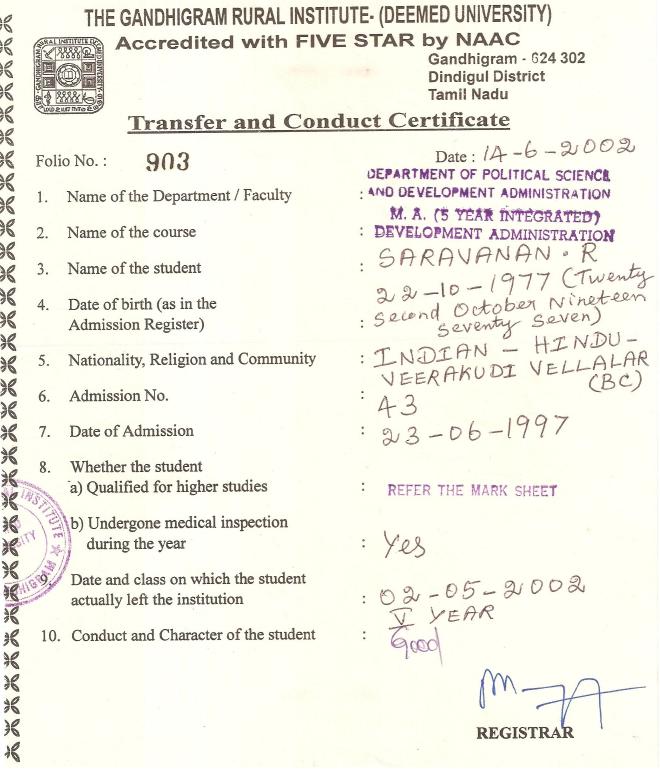 THE GANDHIGRAM RURAL INSTITUTE- (DEEMED UNIVERSITY)
Accredited with FIVE STAR by NAAC
Gandhigram - 624 302
Dindigul District
Tamil Nadu
Transfer and Conduct Certificate
Folio No. : 903 Date : 14-6-2002
1. Name of the Department / Faculty : DEPARTMENT OF POLITICAL SCIENCE
AND DEVELOPMENT ADMINISTRATION
2. Name of the course : M. A. (5 YEAR INTEGRATED)
DEVELOPMENT ADMINISTRATION
3. Name of the student : SARAVANAN . R
4. Date of birth (as in the
Admission Register) : 22-10-1977 (Twenty
Second October Nineteen
Seventy Seven)
5. Nationality, Religion and Community : INDIAN - HINDU -
VEERAKUDI VELLALAR
(BC)
6. Admission No. : 43
7. Date of Admission : 23-06-1997
8. Whether the student
a) Qualified for higher studies : REFER THE MARK SHEET
b) Undergone medical inspection
during the year : Yes
9. Date and class on which the student
actually left the institution : 02-05-2002
V YEAR
10. Conduct and Character of the student : Good
REGISTRAR